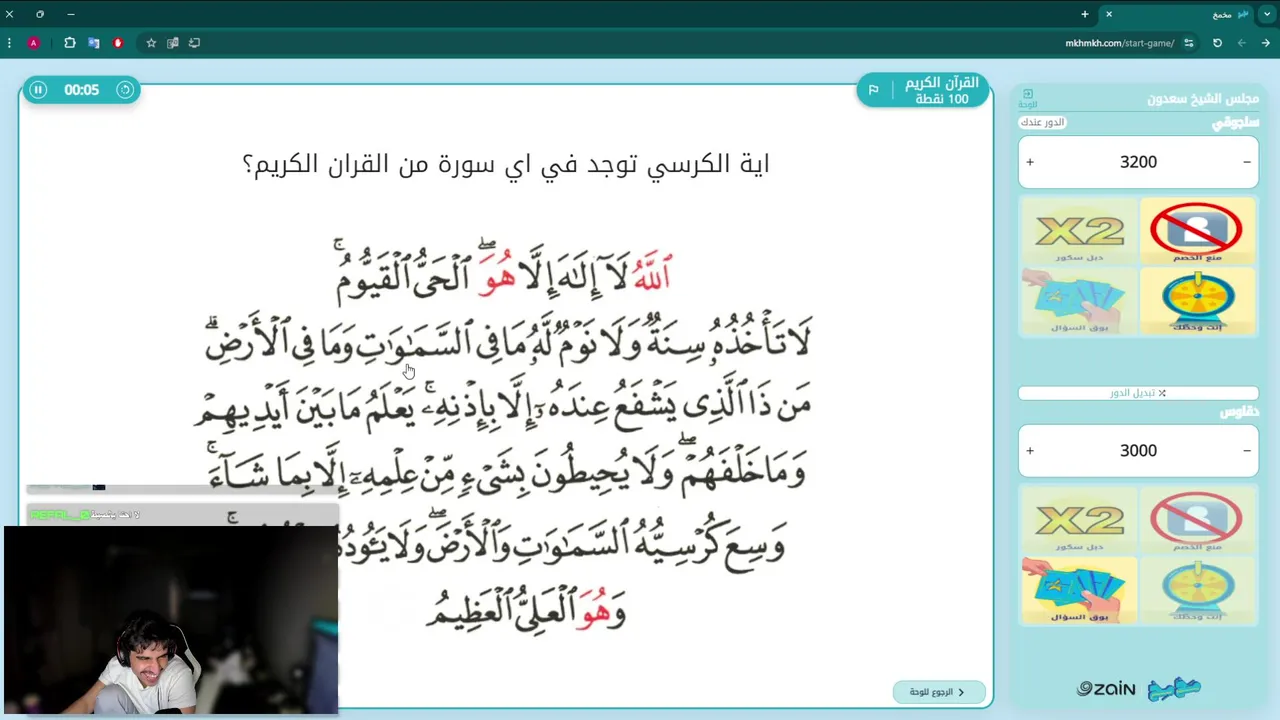 مخمخ
mkhmkh.com/start-game/
A
00:05
القرآن الكريم
100 نقطة
اية الكرسي توجد في اي سورة من القران الكريم؟
ٱللَّهُ لَآ إِلَٰهَ إِلَّا هُوَ ۖ ٱلْحَىُّ ٱلْقَيُّومُ ۚ
لَا تَأْخُذُهُۥ سِنَةٌ وَلَا نَوْمٌ لَّهُۥ مَا فِى ٱلسَّمَٰوَٰتِ وَمَا فِى ٱلْأَرْضِ ۗ
مَن ذَا ٱلَّذِى يَشْفَعُ عِندَهُۥٓ إِلَّا بِإِذْنِهِۦ ۚ يَعْلَمُ مَا بَيْنَ أَيْدِيهِمْ
وَمَا خَلْفَهُمْ ۖ وَلَا يُحِيطُونَ بِشَىْءٍ مِّنْ عِلْمِهِۦٓ إِلَّا بِمَا شَآءَ ۚ
وَسِعَ كُرْسِيُّهُ ٱلسَّمَٰوَٰتِ وَٱلْأَرْضَ ۖ وَلَا يَـُٔودُهُ
وَهُوَ ٱلْعَلِىُّ ٱلْعَظِيمُ
الرجوع للوحة
مجلس الشيخ سعدون
للوحة
سلجوقي
الدور عندك
+ 3200 −
X2
دبل سكور
منع الخصم
بوق السؤال
إنت وحظك
تبديل الدور
دقلوس
+ 3000 −
X2
دبل سكور
منع الخصم
بوق السؤال
إنت وحظك
zain
مخمخ